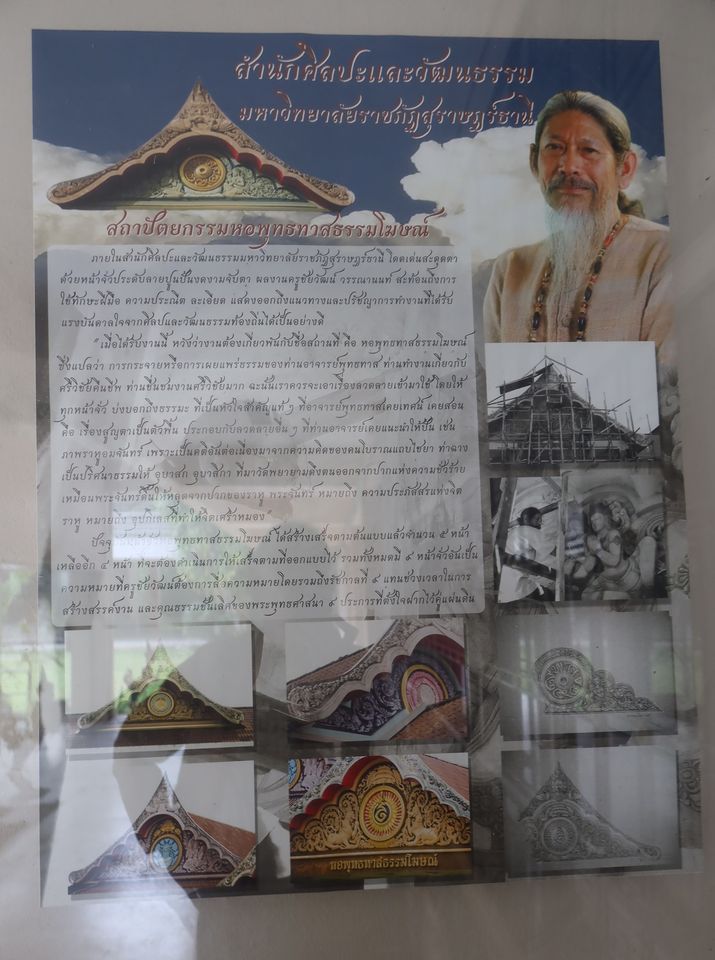 สำนักศิลปะและวัฒนธรรม
มหาวิทยาลัยราชภัฏสุราษฎร์ธานี
สถาปัตยกรรมหอพุทธทาสธรรมโฆษณ์
ภายในสำนักศิลปะและวัฒนธรรมมหาวิทยาลัยราชภัฏสุราษฎร์ธานี โดดเด่นสะดุดตา
ด้วยหน้าจั่วประดับลายปูนปั้นงดงามจับตา ผลงานครูชัยวัฒน์ วรรณานนท์ สะท้อนถึงการ
ใช้ทักษะฝีมือ ความประณีต ละเอียด แสดงออกถึงแนวทางและปรัชญาการทำงานที่ได้รับ
แรงบันดาลใจจากศิลปและวัฒนธรรมท้องถิ่นได้เป็นอย่างดี
"เมื่อได้รับงานนี้ หวังว่างานต้องเกี่ยวพันกับชื่อสถานที่ คือ หอพุทธทาสธรรมโฆษณ์
ซึ่งแปลว่า การกระจายหรือการเผยแพร่ธรรมของท่านอาจารย์พุทธทาส ท่านทำงานเกี่ยวกับ
ศรีวิชัยคืนชีพ ท่านชื่นชมงานศรีวิชัยมาก ฉะนั้นเราควรจะเอาเรื่องลวดลายเข้ามาใช้ โดยให้
ทุกหน้าจั่ว บ่งบอกถึงธรรมะ ที่เป็นหัวใจสำคัญแท้ ๆ ที่อาจารย์พุทธทาสเคยเทศน์ เคยสอน
คือ เรื่องสูญตาเป็นตัวพื้น ประกอบกับลวดลายอื่น ๆ ที่ท่านอาจารย์เคยแนะนำให้ปั้น เช่น
ภาพราหูอมจันทร์ เพราะเป็นคติอันต่อเนื่องมาจากความคิดของคนโบราณแถบไชยา ท่าฉาง
เป็นปริศนาธรรมให้ อุบาสก อุบาสิกา ที่มาวัดพยายามดึงตนออกจากปากแห่งความชั่วร้าย
เหมือนพระจันทร์ดิ้นให้หลุดจากปากของราหู พระจันทร์ หมายถึง ความประภัสสรแห่งจิต
ราหู หมายถึง อุปกิเลสที่ทำให้จิตเศร้าหมอง"
ปัจจุบันหน้าจั่วหอพุทธทาสธรรมโฆษณ์ ได้สร้างเสร็จตามต้นแบบแล้วจำนวน ๕ หน้า
เหลืออีก ๔ หน้า ที่จะต้องดำเนินการให้เสร็จตามที่ออกแบบไว้ รวมทั้งหมดมี ๙ หน้าจั่วอันเป็น
ความหมายที่ครูชัยวัฒน์ต้องการสื่อความหมายโดยรวมถึงรัชกาลที่ ๙ แทนช่วงเวลาในการ
สร้างสรรค์งาน และคุณธรรมชั้นเลิศของพระพุทธศาสนา ๙ ประการที่ตั้งใจฝากไว้คู่แผ่นดิน
หอพุทธทาสธรรมโฆษณ์